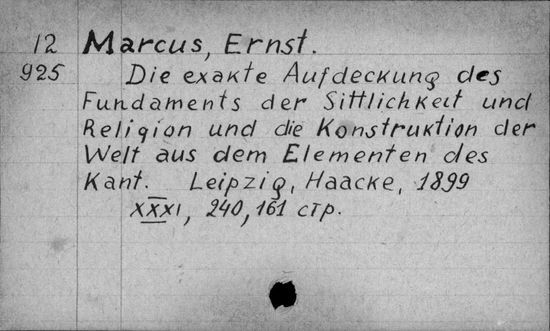 12 Marcus, Ernst.
925 Die exakte Aufdeckung des
Fundaments der Sittlichkeit und
Religion und die Konstruktion der
Welt aus dem Elementen des
Kant. Leipzig, Haacke, 1899
XXXI, 240, 161 стр.